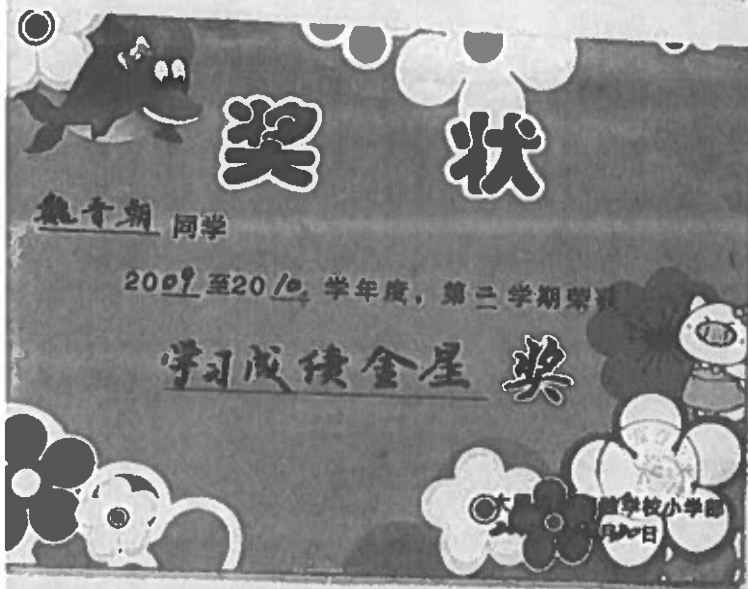 奖 状
魏青朝 同学
2009至2010学年度，第二学期荣获
学习成绩金星 奖
学校小学部
月 日